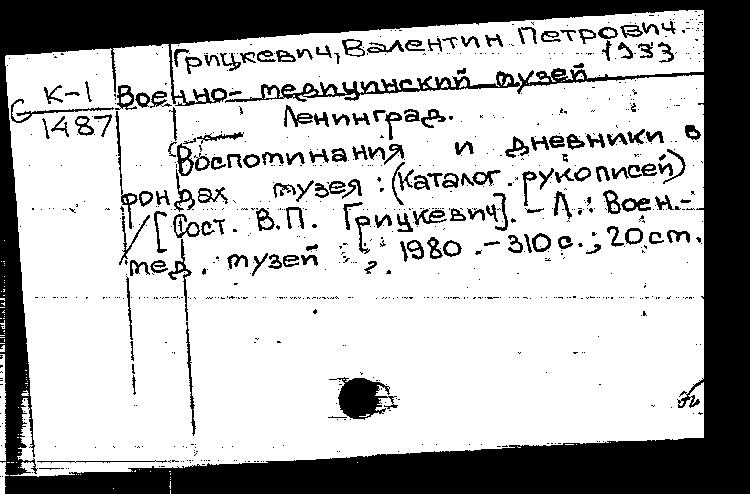 Грицкевич, Валентин Петрович.
1933
К-1 Военно-медицинский музей.
G
1487 Ленинград.
Воспоминания и дневники в
фондах музея: (Каталог рукописей)
[Сост. В.П. Грицкевич]. - Л.: Воен.-
мед. музей, 1980. - 310 с.; 20 cm.